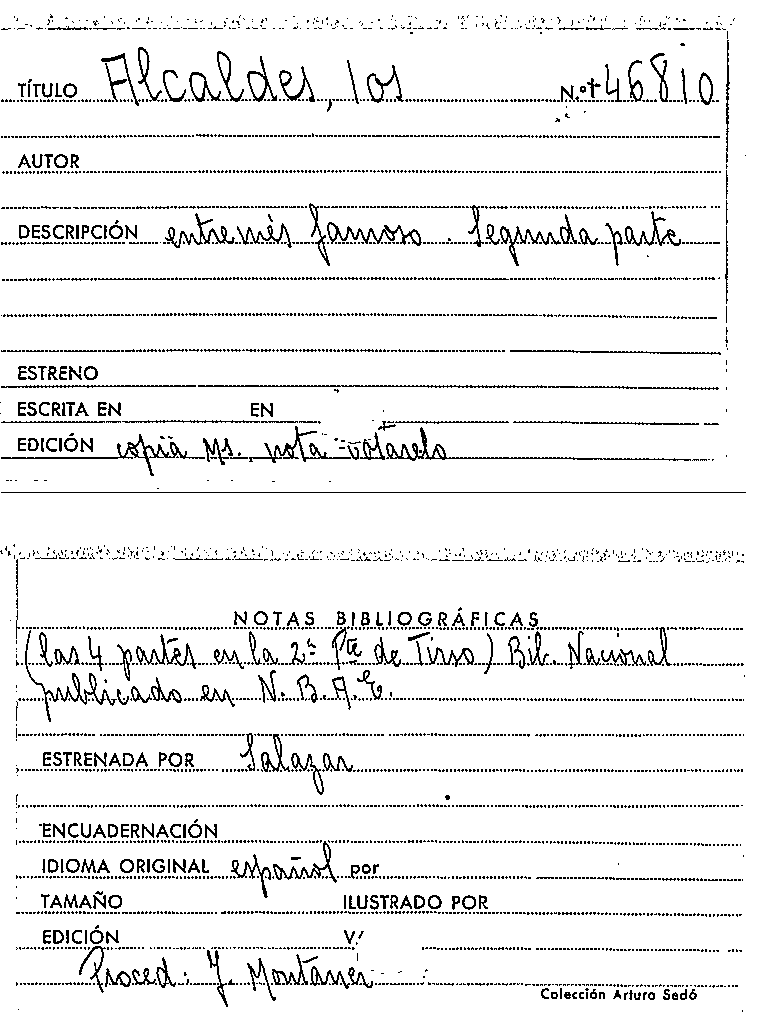 TÍTULO Alcaldes, los N.º + 46810
AUTOR
DESCRIPCIÓN entremés famoso. Segunda parte
ESTRENO
ESCRITA EN EN
EDICIÓN copia Ms. nota Cotarelo
NOTAS BIBLIOGRÁFICAS
(las 4 partes en la 2ª Pte de Tirso) Bib. Nacional
publicado en N.B.A.E.
ESTRENADA POR Salazar
ENCUADERNACIÓN
IDIOMA ORIGINAL español por
TAMAÑO ILUSTRADO POR
EDICIÓN V.
Proced: J. Montaner
Colección Arturo Sedó